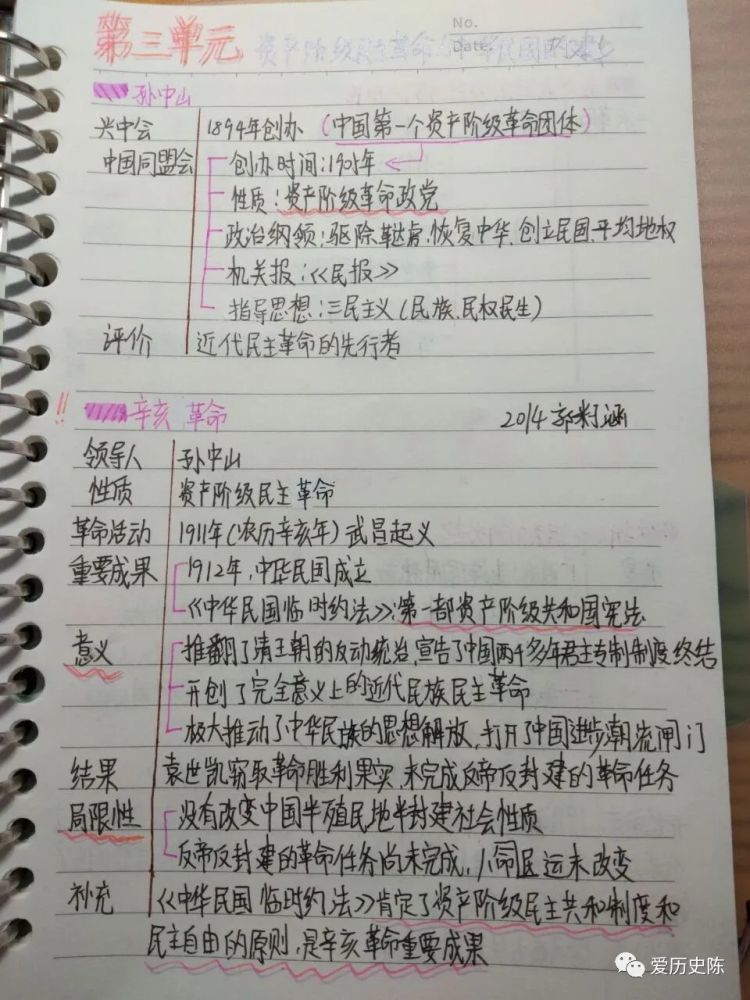 第三单元 资产阶级民主革命与中华民国的建立
No.
Date.
孙中山
兴中会 1894年创办（中国第一个资产阶级革命团体）
中国同盟会 创办时间：1905年
性质：资产阶级革命政党
政治纲领：驱除鞑虏、恢复中华、创立民国、平均地权
机关报：《民报》
指导思想：三民主义（民族、民权民生）
评价 近代民主革命的先行者
!! 辛亥革命 2014 郭籽涵
领导人 孙中山
性质 资产阶级民主革命
革命活动 1911年（农历辛亥年）武昌起义
重要成果 1912年，中华民国成立
《中华民国临时约法》：第一部资产阶级共和国宪法
意义 推翻了清王朝的反动统治，宣告了中国两千多年君主专制制度终结
开创了完全意义上的近代民族民主革命
极大推动了中华民族的思想解放，打开了中国进步潮流闸门
结果 袁世凯窃取革命胜利果实，未完成反帝反封建的革命任务
局限性 没有改变中国半殖民地半封建社会性质
反帝反封建的革命任务尚未完成，人命运未改变
补充 《中华民国临时约法》肯定了资产阶级民主共和制度和
民主自由的原则，是辛亥革命重要成果
爱历史陈